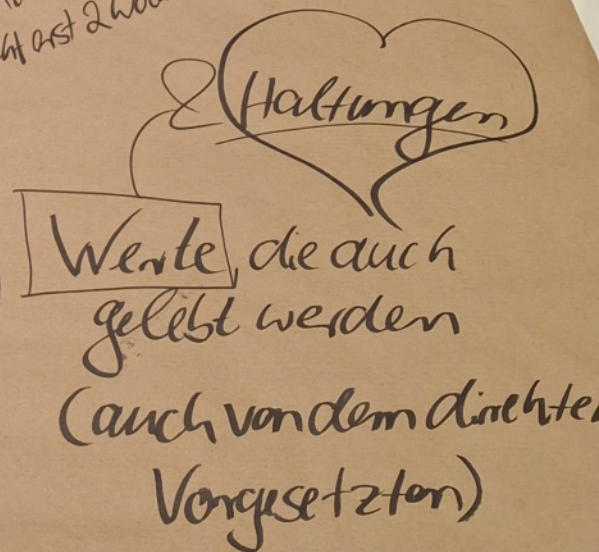 erst 2
& Haltungen
Werte, die auch
gelebt werden
(auch von dem direkten
Vorgesetzten)